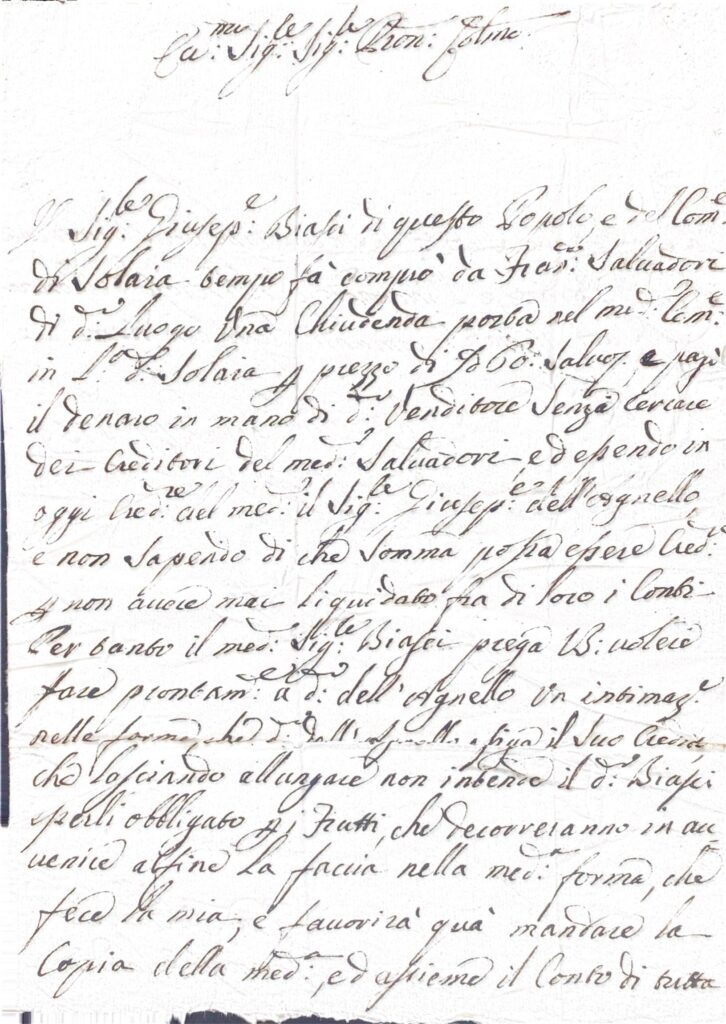 Ca:mo Sig:le Sig:le Pron: Colmo
Il Sig:le Giusep:e Biasci di questo Popolo, e del Com:e
di Solaia tempo fà comprò da Fran:co Salvadori
di d:o Luogo Una Chiudenda posta nel med:o Com:e
in L:o d:o Solaia p prezzo di 60: Salvo, e pagò
il denaro in mano di d:o Venditore Senza Cercare
dei Creditori del med:o Salvadori, ed essendo in
oggi Cred:re del med:o il Sig:le Giusep:e dell'Agnello,
e non Sapendo di che Somma possa essere Cred:e
p non avere mai liquidato fra di loro i Conti
Per tanto il med:o Sig:le Biasci prega VS: volere
fare prontam:e a d:o dell'Agnello Un intimaz:e
nelle forme, che d:o dall'Agnello esiga il Suo Credito,
che lasciando allungare non intende il d:o Biasci
esserli obbligato p i Frutti, che decorreranno in av=
venire affine La faccia nella med:a forma, che
fece la mia, e favorirà quà mandare la
Copia della med:a, ed assieme il Conto di tutta